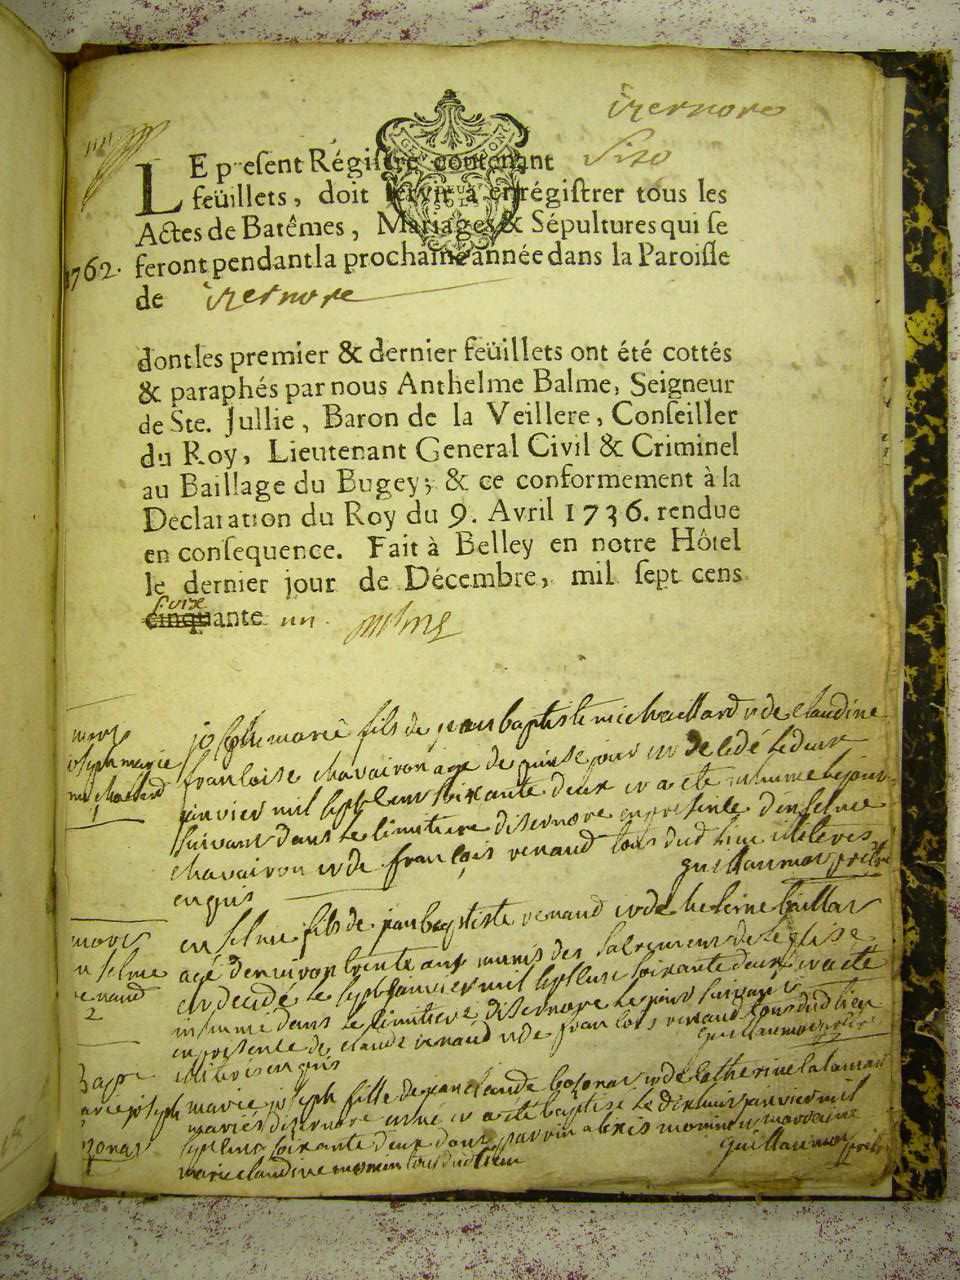 izernore
LE present Régistre contenant six
feüillets, doit servir à enrégistrer tous les
Actes de Batêmes, Mariages & Sépultures qui se
1762. feront pendant la prochaine année dans la Paroisse
de izernore
dont les premier & dernier feüillets ont été cottés
& paraphés par nous Anthelme Balme, Seigneur
de Ste. Jullie, Baron de la Veillere, Conseiller
du Roy, Lieutenant General Civil & Criminel
au Baillage du Bugey; & ce conformement à la
Declaration du Roy du 9. Avril 1736. rendue
en consequence. Fait à Belley en notre Hôtel
le dernier jour de Décembre, mil sept cens
soixante un
joseph marie fils de jean baptiste michaillard et de claudine
francoise chavairon agé de quinse jour est decedé le deux
janvier mil sept cens soixante deux et a été inhumé le jour
suivant dans le cimitiere disernore en presence d'enselme
chavairon et de françois renaud tous dud lieu illeteres
enquis
guillaumot prêtre
enselme fils de jean baptiste renaud et de
agé denviron trente ans munis des sacremens de l'eglise
est decedé le sept janvier mil sept cens soixante deux et a été
inhumé dans le cimitiere disernore le jour suivant
en presence de claude renaud et de francois renaud tous dud lieu
enquis
guillaumot prêtre
marie joseph fille de jean claude et de catherine
mariés disernore est né et a été baptisé le dix huit janvier mil
sept cens soixante deux dont parrin alexis et marraine
marie claudine tous dud lieu
guillaumot prêtre
mors
joseph marie
michallard
mors
enselme
renaud
2
bapt
marie joseph